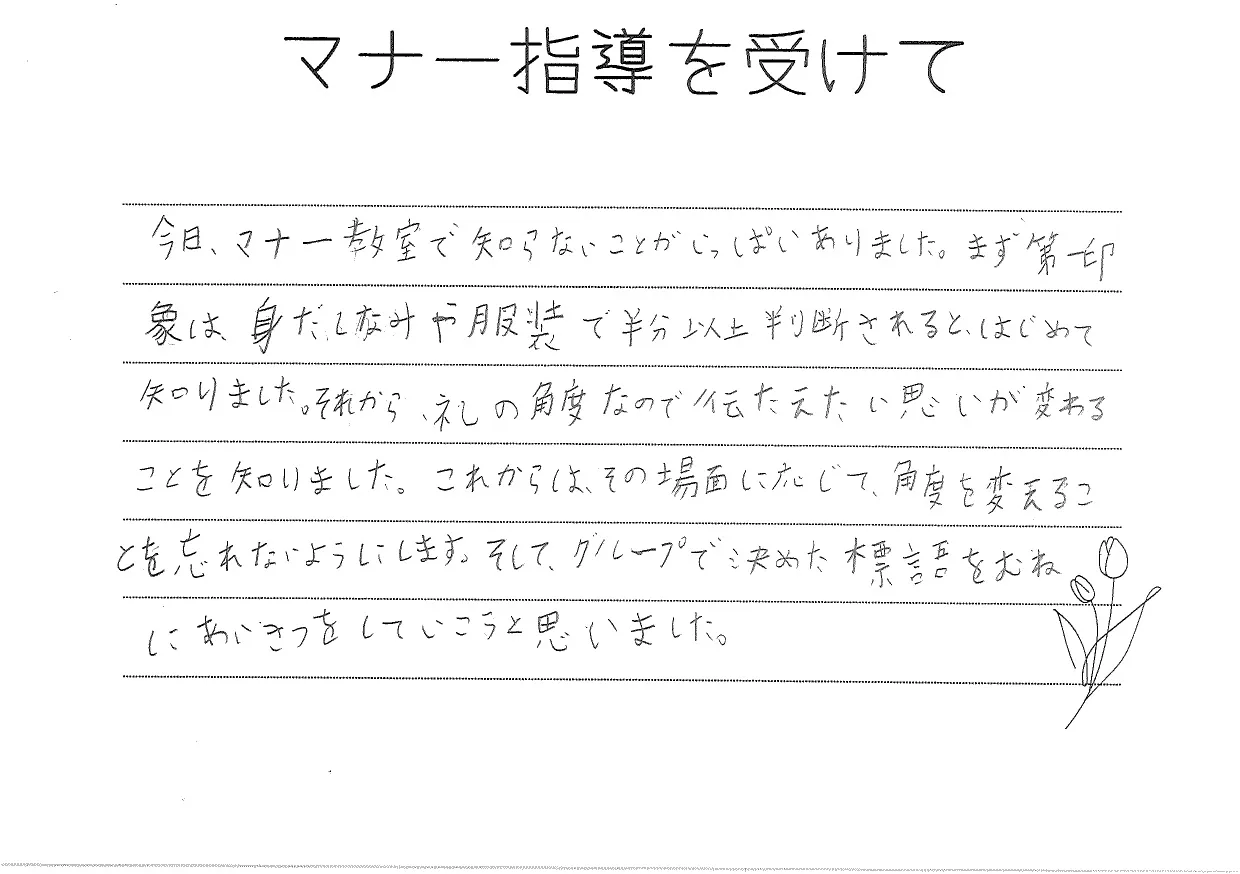 マナー指導を受けて
今日、マナー教室で知らないことがいっぱいありました。まず第一印
象は、身だしなみや服装で半分以上判断されると、はじめて
知りました。それから、礼の角度なので伝えたえたい思いが変わる
ことを知りました。これからは、その場面に応じて、角度を変えるこ
とを忘れないようにします。そして、グループで決めた標語をむね
にあいさつをしていこうと思いました。